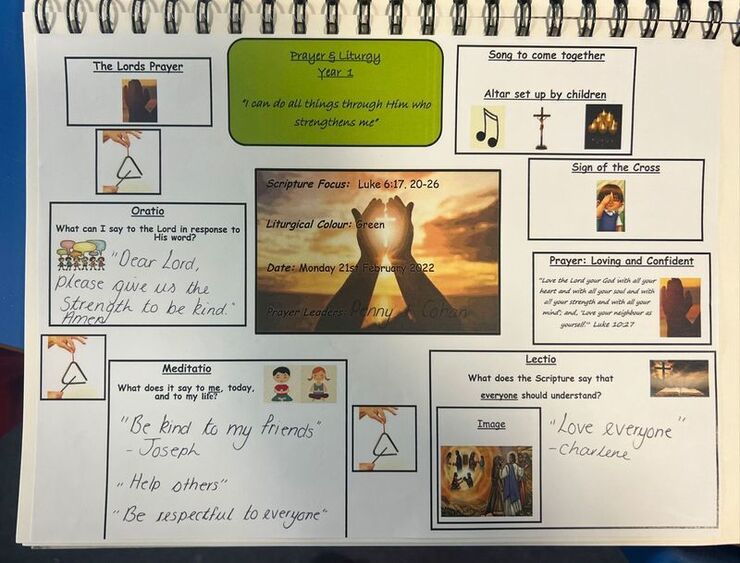 The Lords Prayer
Prayer & Liturgy
Year 1
"I can do all things through Him who
strengthens me"
Song to come together
Altar set up by children
Sign of the Cross
Prayer: Loving and Confident
"Love the Lord your God with all your
heart and with all your soul and with
all your strength and with all your
mind'; and, 'Love your neighbour as
yourself.'" Luke 10:27
Scripture Focus: Luke 6:17, 20-26
Liturgical Colour: Green
Date: Monday 21st February 2022
Prayer Leaders: Penny + Cohan
Oratio
What can I say to the Lord in response to
His word?
"Dear Lord,
please give us the
strength to be kind."
Amen
Meditatio
What does it say to me, today,
and to my life?
"Be kind to my friends"
- Joseph
"Help others"
"Be respectful to everyone"
Lectio
What does the Scripture say that
everyone should understand?
Image
"Love everyone"
- Charlene